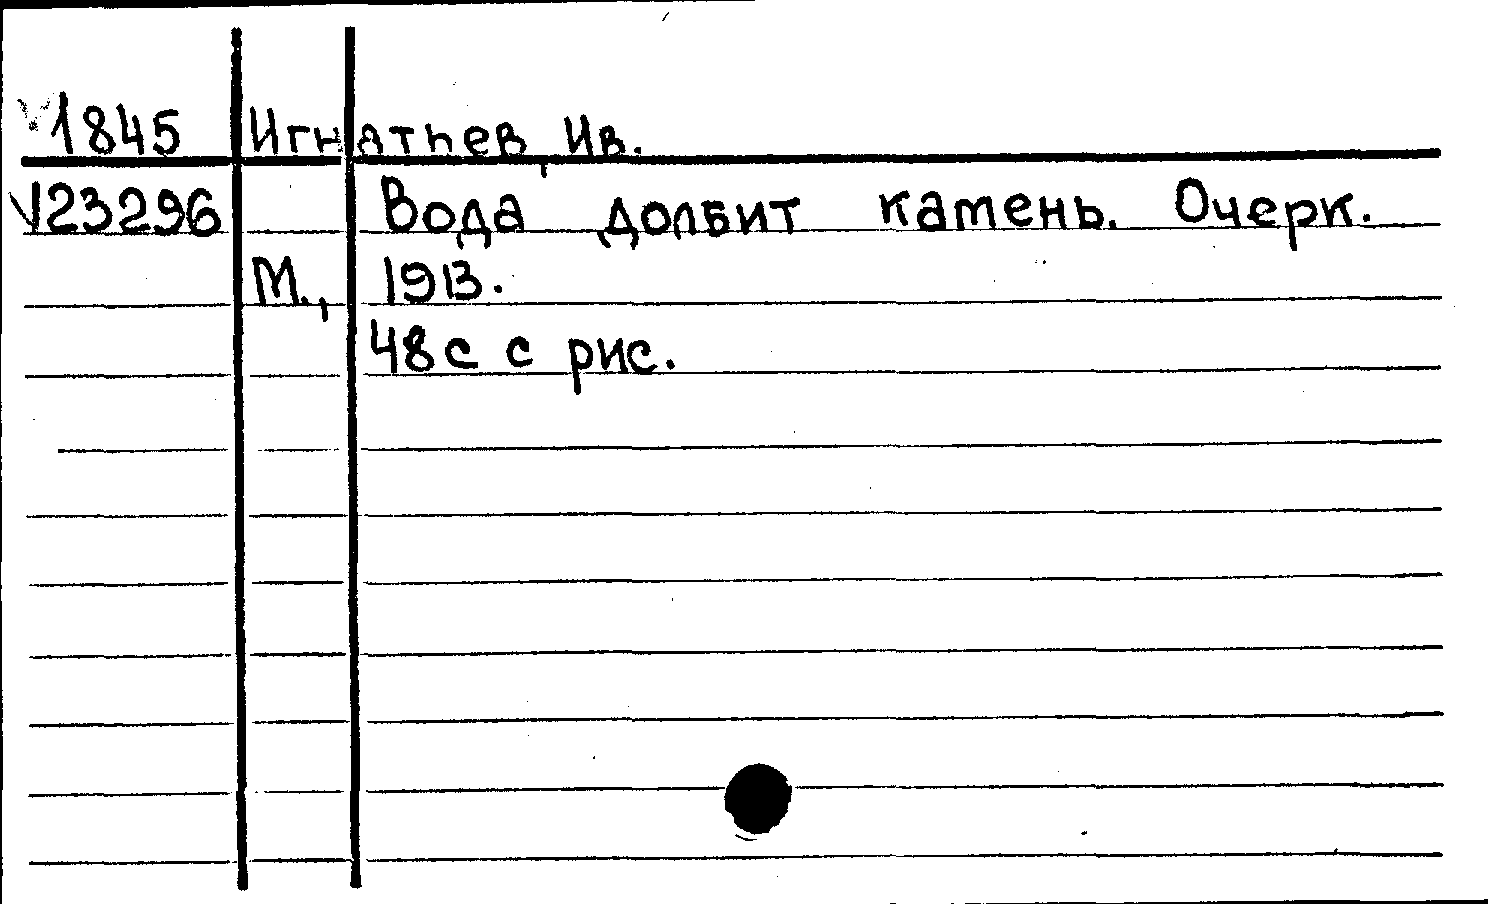 1845 Игнатьев, Ив.
V23296 Вода долбит камень. Очерк.
М., 1913.
48 с с рис.